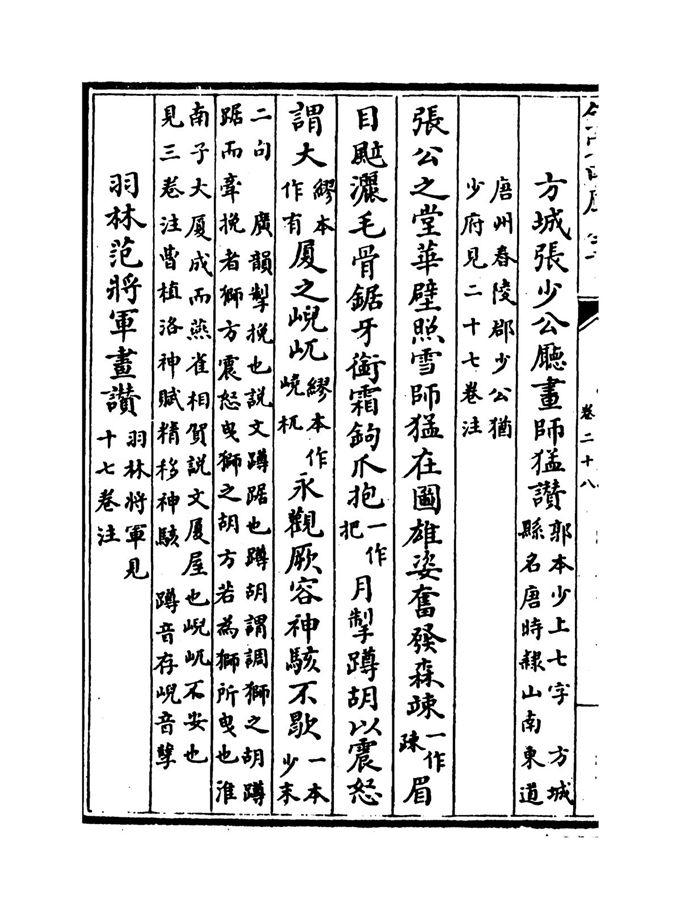 卷二十八
方城張少公廳畫師猛讃郭本少上七字 方城
縣名唐時隷山南東道
唐州春陵郡少公猶
少府見二十七卷注
張公之堂華壁照雪師猛在圖雄姿奮發森竦一作
疎眉
目颯灑毛骨鋸牙銜霜鉤爪抱一作
把月掣蹲胡以震怒
謂大繆本
作有厦之峴屼繆本作
嶢杌永觀厥容神駭不歇一本
少末
二句 廣韻掣挽也説文蹲踞也蹲胡謂調獅之胡蹲
踞而牽挽者獅方震怒曳獅之胡方若為獅所曳也淮
南子大厦成而燕雀相賀説文厦屋也峴屼不安也
見三卷注曹植洛神賦精移神駭 蹲音存峴音孽
羽林范將軍畫讃羽林將軍見
十七卷注